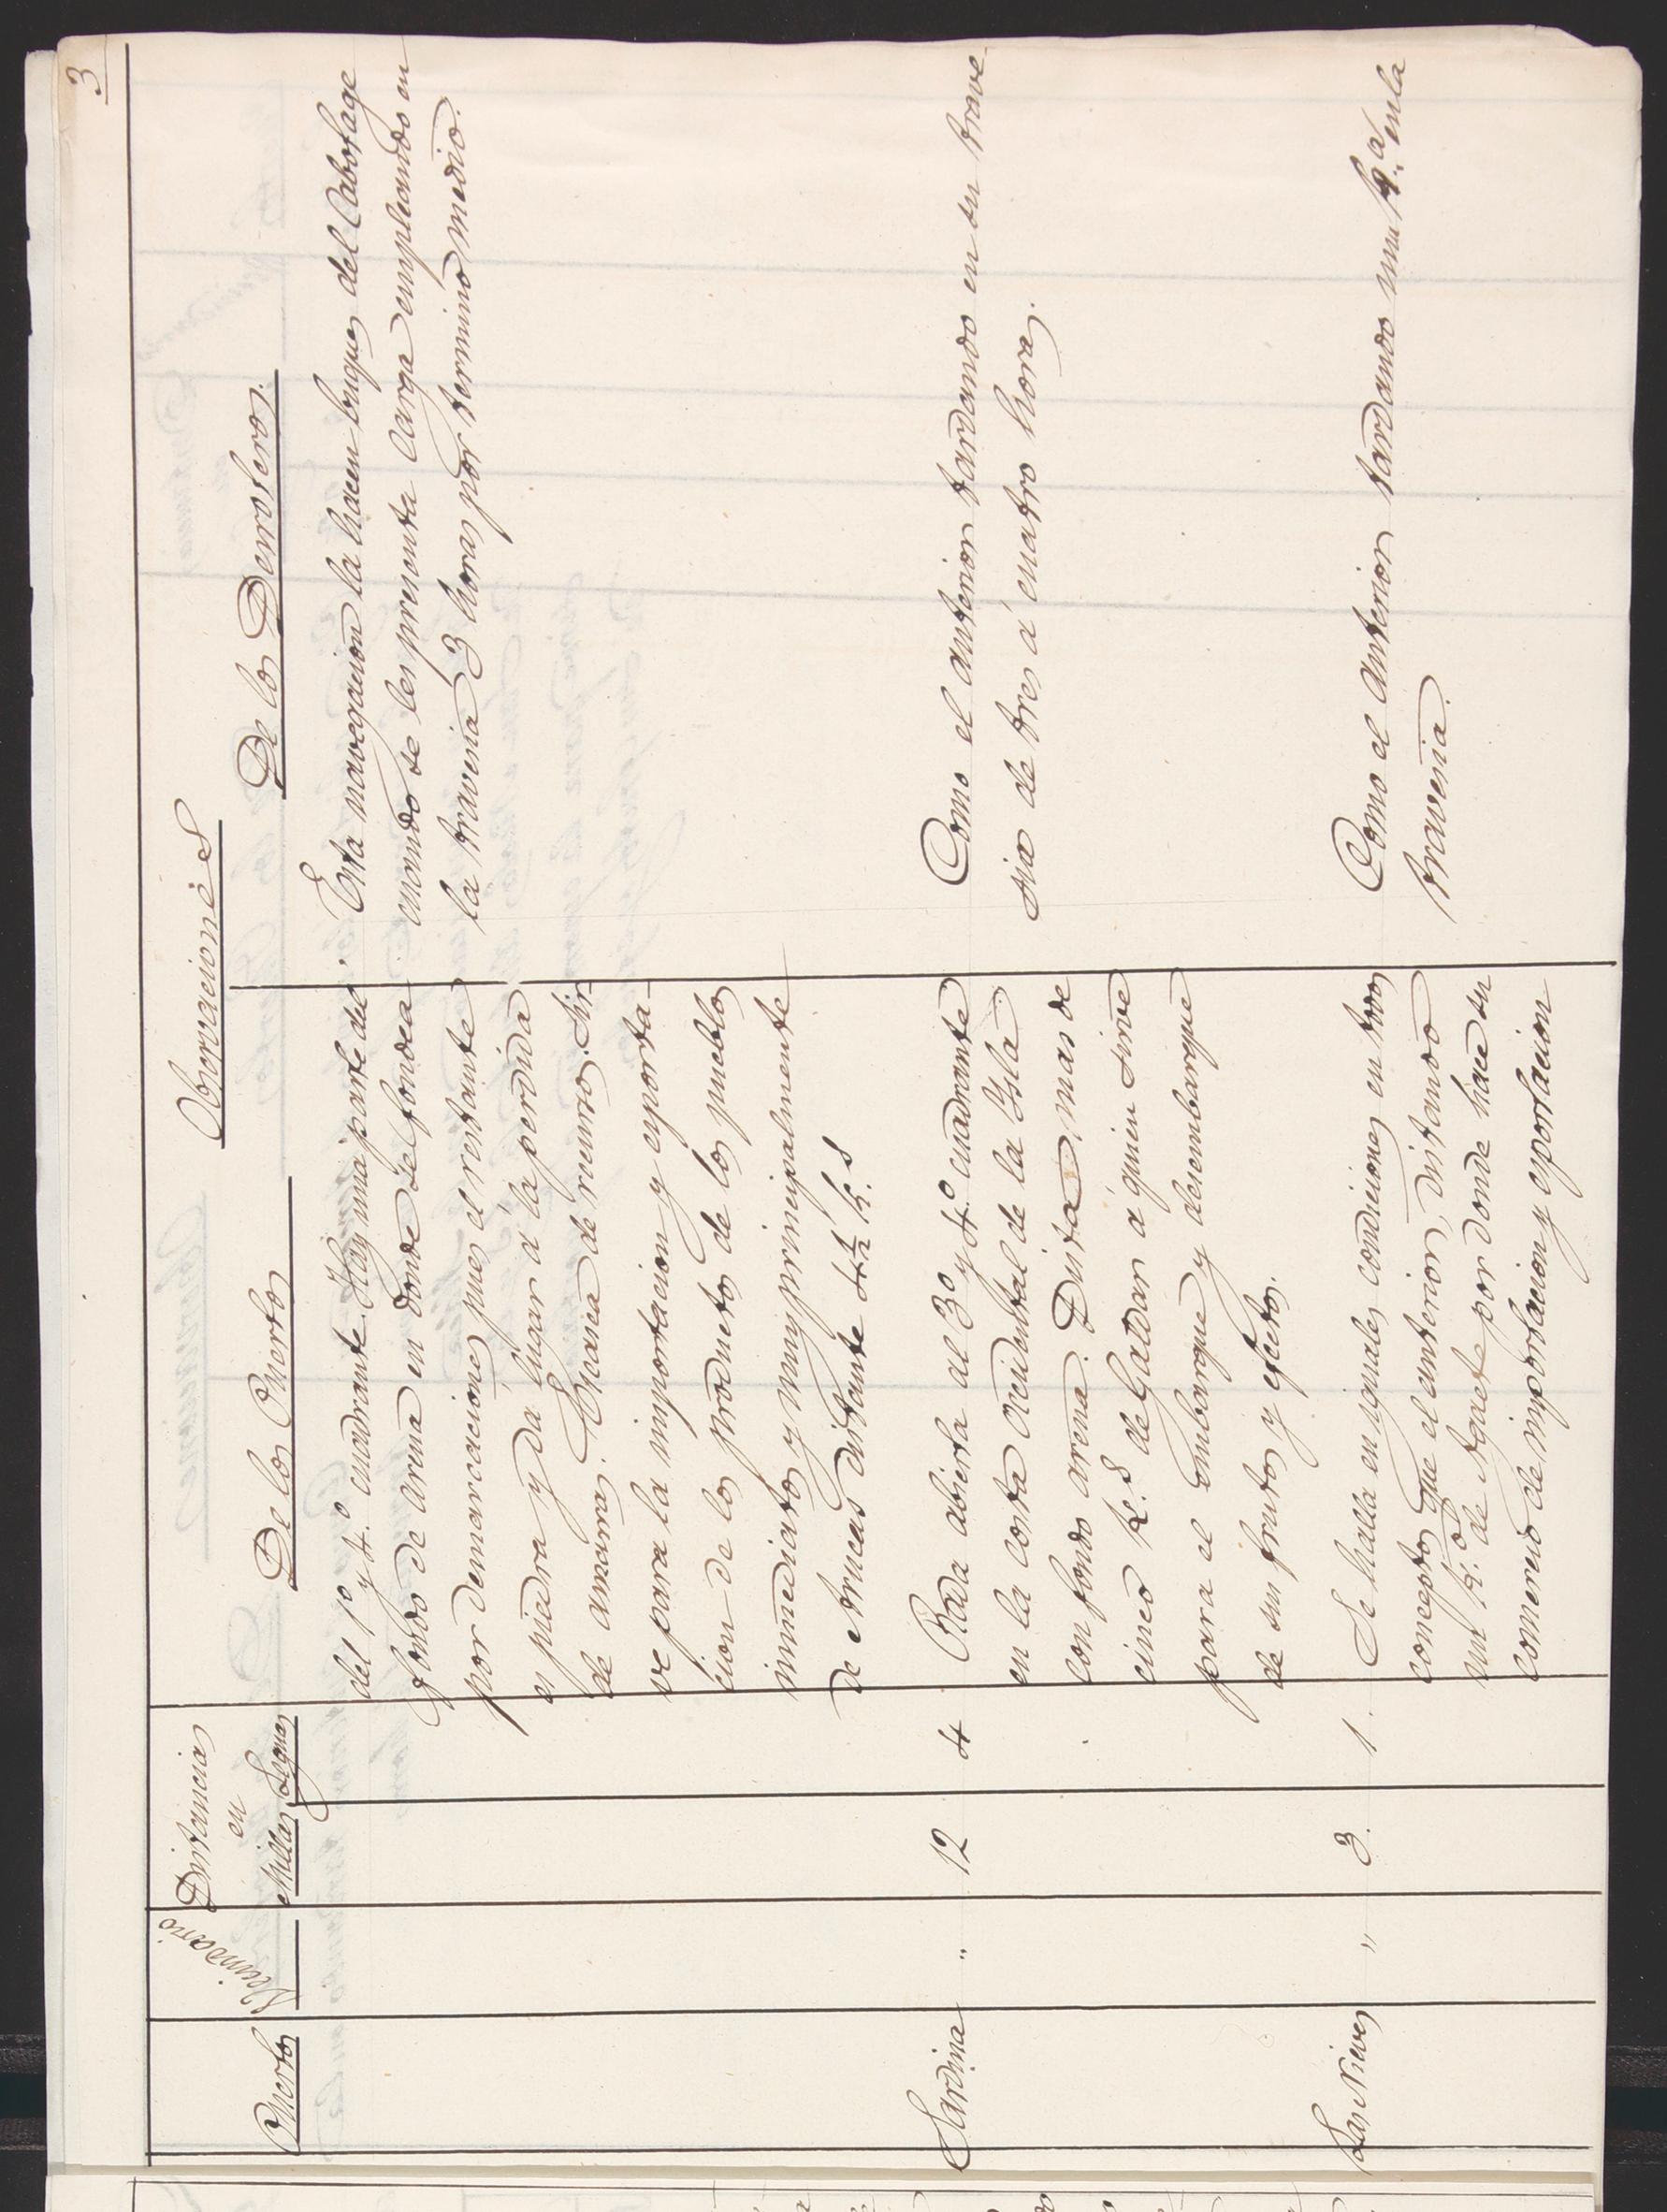 3
Observaciones
Puertos
Vecindario
Distancias
en
Millas Leguas
De los Puertos
De los Derroteros.
del 1º y 4.º cuadrante. Hay una parte del
fondo de arena en donde se fondea
por demarcaciones pues el restante
es piedra y da lugar á la perdida
de amarras. Escasea de recursos. Sir-
ve para la importacion y esporta-
cion de los productos de los pueblos
inmediatos y muy principalmente
de Arucas distante 4 1/2 k.s
Esta navegacion la hacen buques del Cabotage
cuando se les presenta carga empleando en
la travesia 3 horas por termino medio.
Sardina
"
12
4
Rada abierta al 3º y 4.º cuadrante
en la costa occidental de la Ysla
con fondo arena. Dista mas de
cinco k.s de Galdar á quien sirve
para el embarque y desembarque
de sus frutos y efectos.
Como el anterior tardando en su trave-
sia de tres á cuatro horas.
Las Nieves
"
3.
1.
Se halla en iguales condiciones en todos
conceptos que el anterior, distando
un k.º de Agaete por donde hace su
comercio de importacion y esportacion
Como el anterior tardando en la
travesia.